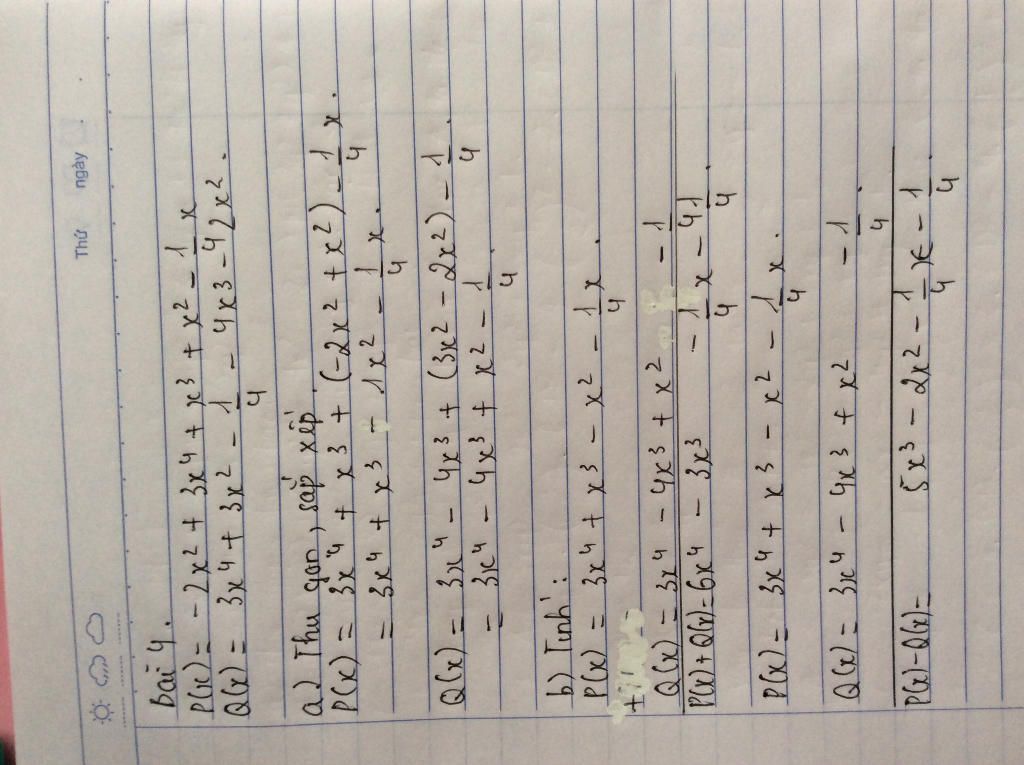 Thứ ngày
Bài 4.
P(x) = -2x² + 3x⁴ + x³ + x² - 1/4 x
Q(x) = 3x⁴ + 3x² - 1/4 - 4x³ - 2x².
a.) Thu gọn, sắp xếp.
P(x) = 3x⁴ + x³ + (-2x² + x²) - 1/4 x.
= 3x⁴ + x³ - 1x² - 1/4 x.
Q(x) = 3x⁴ - 4x³ + (3x² - 2x²) - 1/4.
= 3x⁴ - 4x³ + x² - 1/4
b) Tính:
P(x) = 3x⁴ + x³ - x² - 1/4 x.
+
Q(x) = 3x⁴ - 4x³ + x² - 1/4
P(x)+Q(x)= 6x⁴ - 3x³ - 1/4 x - 1/4.
P(x) = 3x⁴ + x³ - x² - 1/4 x.
Q(x) = 3x⁴ - 4x³ + x² - 1/4.
P(x)-Q(x)= 5x³ - 2x² - 1/4 x - 1/4.